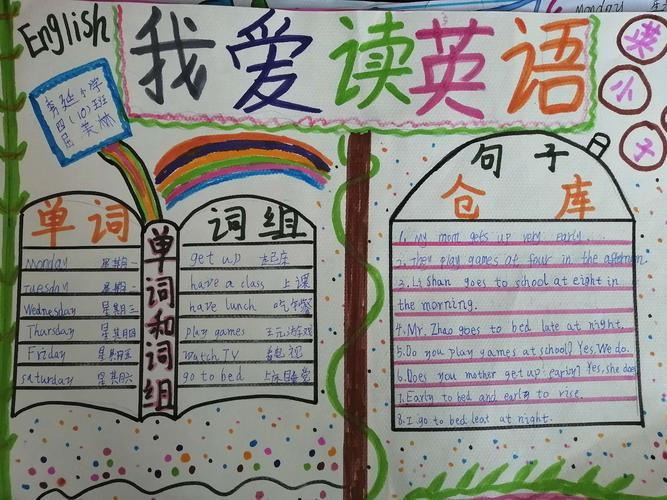 English
我爱读英语
英
小
子
Monday
小学
四(10)班
单词
Monday 星期一
Tuesday 星期二
Wednesday 星期三
Thursday 星期四
Friday 星期五
saturday 星期六
单词和词组
词组
get up 起床
have a class 上课
have lunch 吃午餐
play games 玩游戏
watch TV 看电视
go to bed 上床睡觉
句子
仓库
1. My mom gets up very early.
2. They play games at four in the afternoon.
3. Li Shan goes to school at eight in
the morning.
4. Mr. Zhao goes to bed late at night.
5. Do you play games at school? Yes, We do.
6. Does you mother get up early? Yes, she does
7. Early to bed and early to rise.
8. I go to bed leat at night.